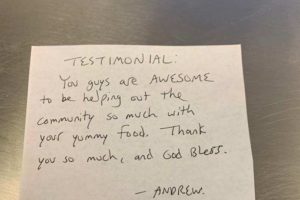 TESTIMONIAL:
You guys are AWESOME
to be helping out the
community so much with
your yummy food. Thank
you so much, and God Bless.
— ANDREW.